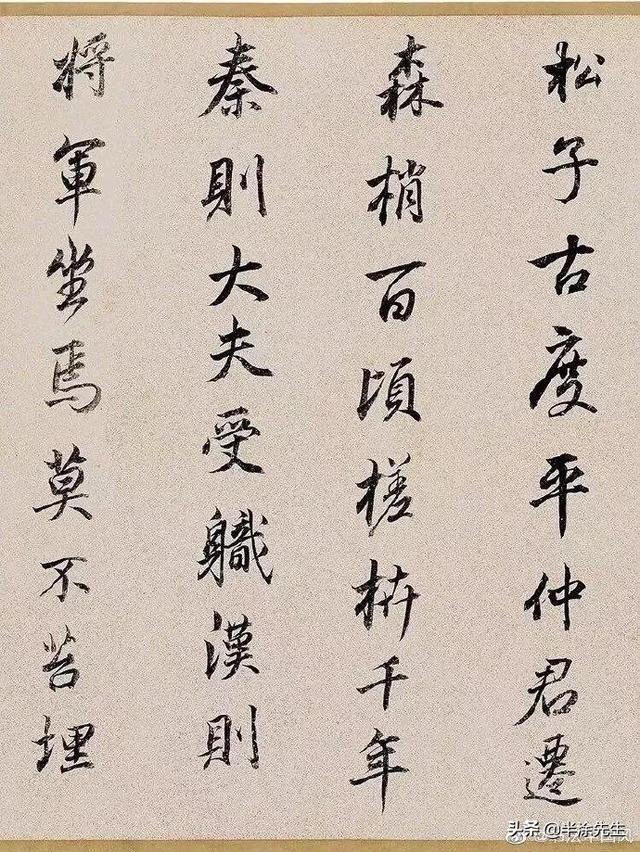 松子古度平仲君遷
森梢百頃槎枿千年
秦則大夫受軄漢則
將軍坐焉莫不苔埋
头条 @半涂先生